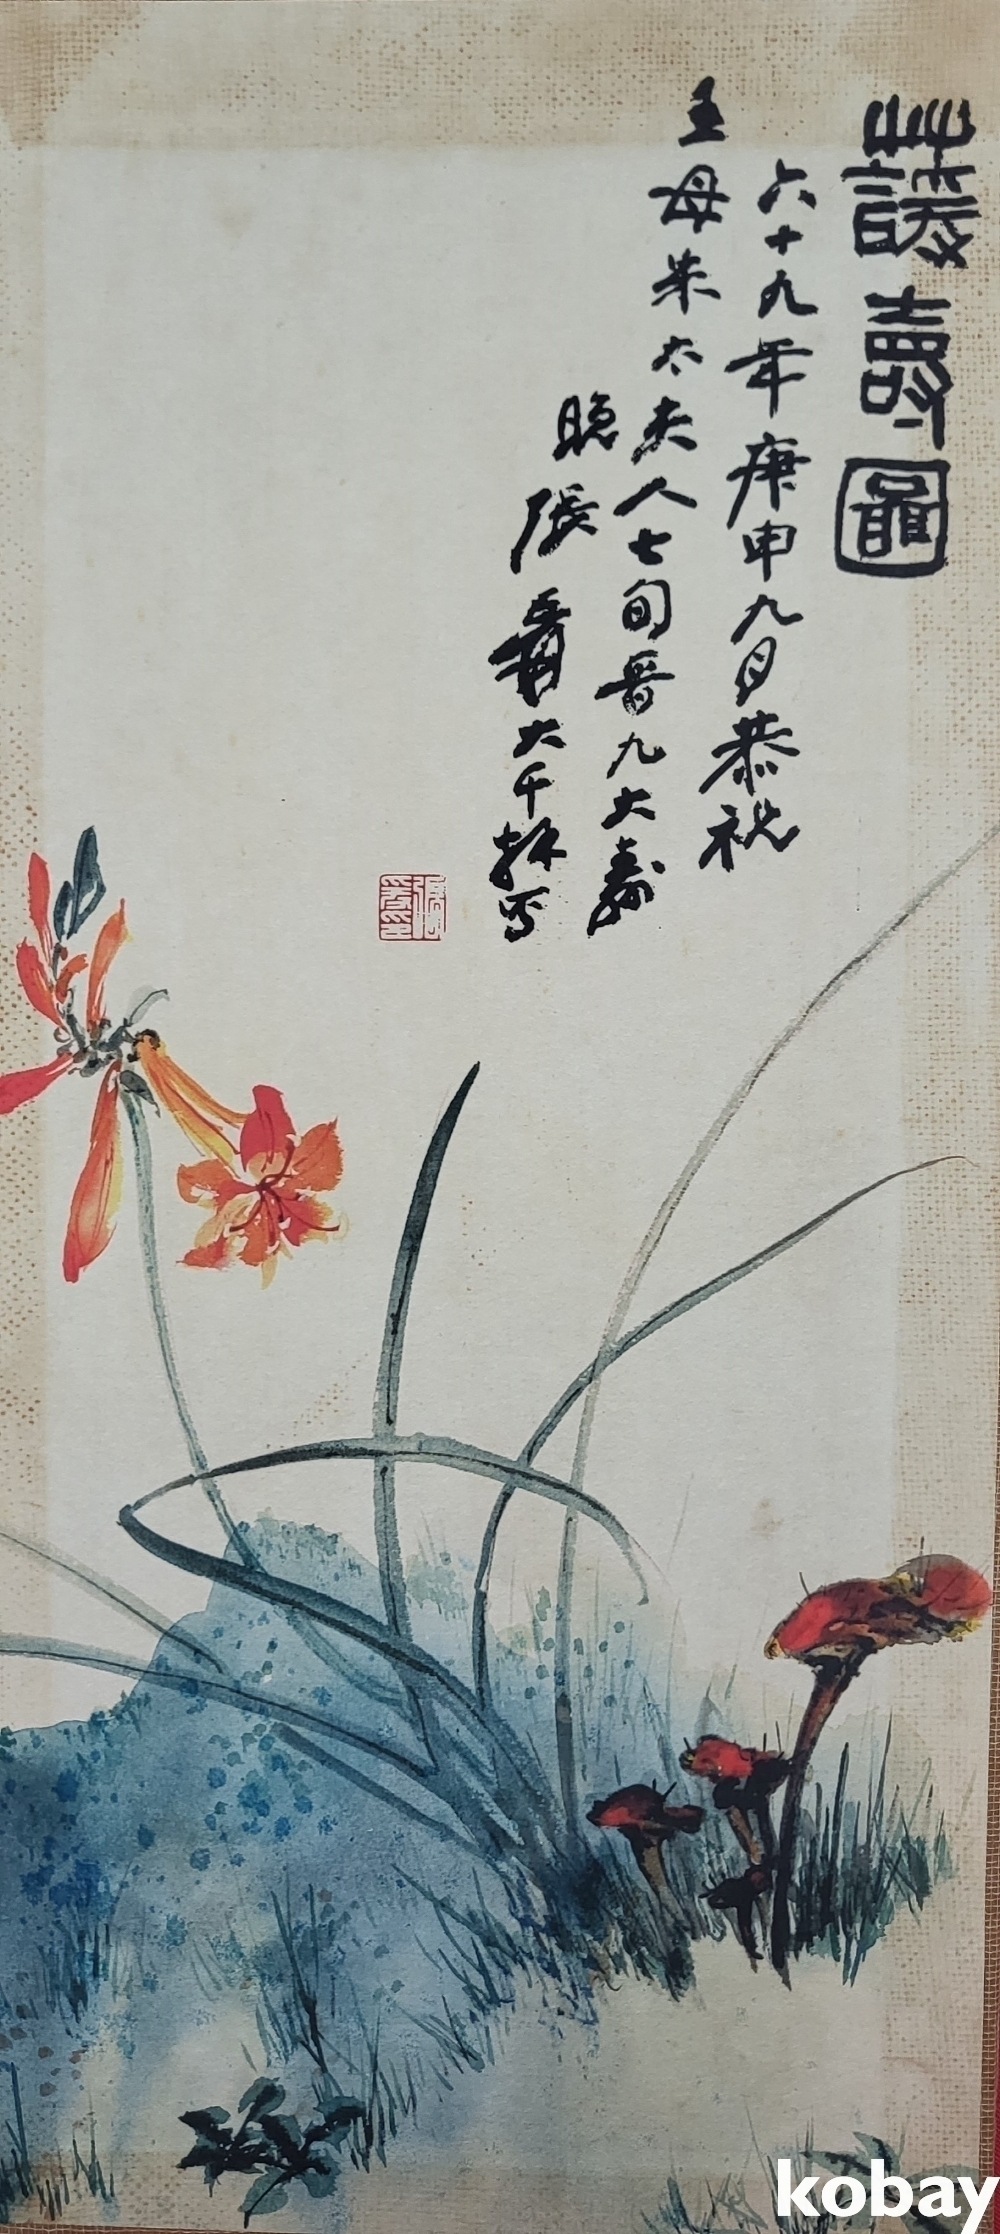 蘐壽圖
六十九年庚申九月恭祝
王母朱太夫人七旬晋九大壽
晚張爰大千拜写
kobay